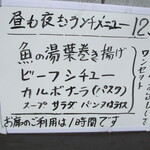 昼も夜もランチメニュー 12
魚の湯葉巻き揚げ
ビーフシチュー
カルボナーラ(パスタ)
スープ サラダ パン又はライス
お席のご利用は1時間です
ワン